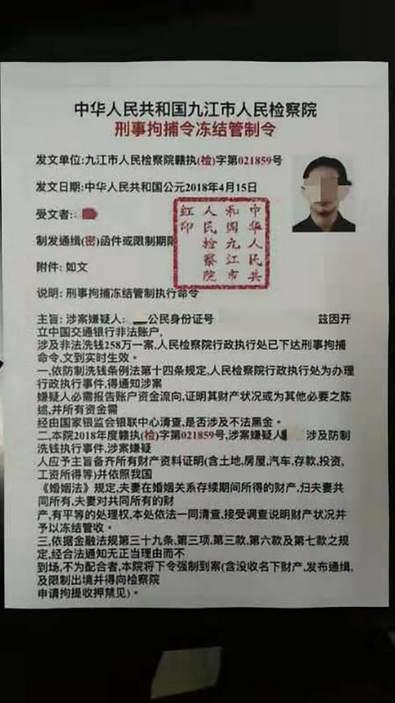 中华人民共和国九江市人民检察院
刑事拘捕令冻结管制令
发文单位:九江市人民检察院赣执(检)字第021859号
发文日期:中华人民共和国公元2018年4月15日
受文者:
中华人民共
和国九江市
人民检察院
红印
制发通缉(密)函件或限制期限
附件: 如文
说明: 刑事拘捕冻结管制执行命令
主旨: 涉案嫌疑人: 公民身份证号 兹因开
立中国交通银行非法账户,
涉及非法洗钱258万一案,人民检察院行政执行处已下达刑事拘捕
命令,文到实时生效。
一,依防制洗钱条例法第十四条规定,人民检察院行政执行处为办理
行政执行事件,得通知涉案
嫌疑人必需报告账户资金流向,证明其财产状况或为其他必要之陈
述,并所有资金需
经由国家银监会银联中心清查,是否涉及不法黑金。
二,本院2018年度赣执(检)字第021859号,涉案嫌疑人 涉及防制
洗钱执行事件,涉案嫌疑
人应予主旨备齐所有财产资料证明(含土地,房屋,汽车,存款,投资,
工资所得等)并依照我国
《婚姻法》规定,夫妻在婚姻关系存续期间所得的财产,归夫妻共
同所有,夫妻对共同所有的财
产,有平等的处理权,本处依法一同清查,接受调查说明财产状况并
予以冻结管收。
三,依据金融法规第三十九条,第三项,第三款,第六款及第七款之规
定,经合法通知无正当理由而不
到场,不为配合者,本院将下令强制到案(含没收名下财产,发布通缉,
及限制出境并得向检察院
申请拘提收押禁见)。